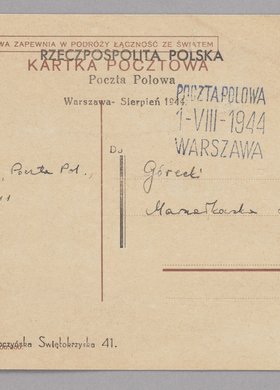 WA ZAPEWNIA W PODRÓŻY ŁĄCZNOŚĆ ZE ŚWIATEM
RZECZPOSPOLITA POLSKA
KARTKA POCZTOWA
Poczta Polowa
Warszawa- Sierpień 1944.
POCZTA POLOWA
1-VIII-1944
WARSZAWA
Poczta Pol.,
Do
Górecki
oczyńska Świętokrzyska 41.